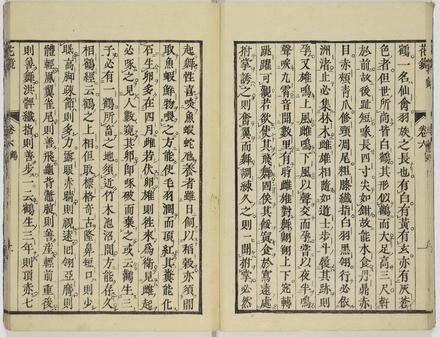 花鏡
卷六
鶴一名仙禽羽族之長也有白有黃有玄亦有灰蒼
色者但世所尚皆白鶴其形似鶴而大足高三尺軒
於前故後趾短喙長四寸尖如鉗故能水食丹頂赤
目赤頰青爪修頸凋尾粗膝纖指白羽黑翎行必依
洲渚止必集林木雌雄相隨如道士步斗履其跡則
孕又雄鳴上風雌鳴下風以聲交而孕嘗以夜半鳴
聲唳九霄音聞數里有時雌雄對舞翱翔上下宛轉
跳躍可觀若欲使其飛舞俟其餒寘食於濶遠處
拊掌誘之則奮翼而舞調練久之則一聞拊掌必然
起舞性喜啖魚蝦蛇虺養者雖日飼以稻穀亦須間
取魚蝦鮮物喂之方能使毛羽潤而頂紅其糞能化
石生卵多在四月雌若伏卵雄則往來爲衛見雌起
必啄之見人數窺其卵即啄破而棄之或云鶴生三
子必有一鶴所畜之地須近竹木池沼間方能存久
相鶴經云鶴之上相但取標格奇古隆鼻短口則少
眠高脚疎節則多力露眼赤睛則視遠回翎亞膺則
體輕鳳翼雀尾則善飛龜背鱉腹則善產輕前重後
則善舞洪髀纖指則善步一云鶴生三年則頂赤七
花鏡
卷六 鶴